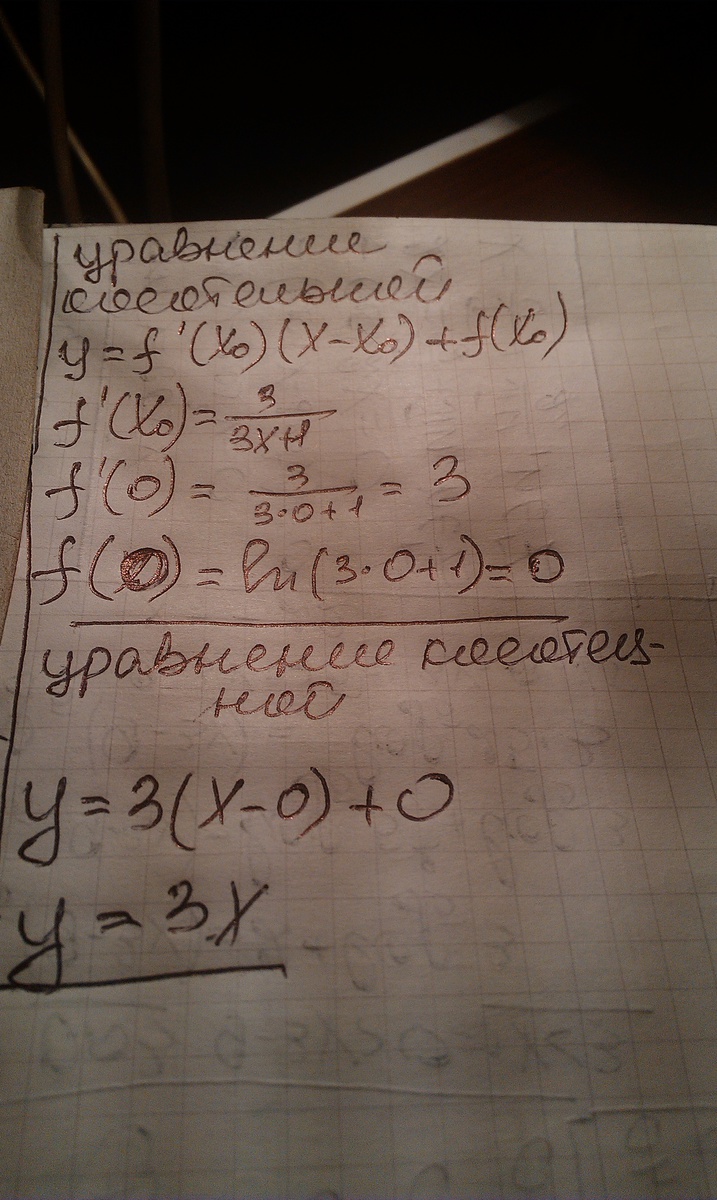 уравнение
касательной
y = f'(x₀)(x-x₀)+f(x₀)
f'(x₀) = 3/(3x+1)
f'(0) = 3/(3·0+1) = 3
f(0) = ln(3·0+1)=0
уравнение касатель-
ной
y = 3(x-0)+0
y = 3x